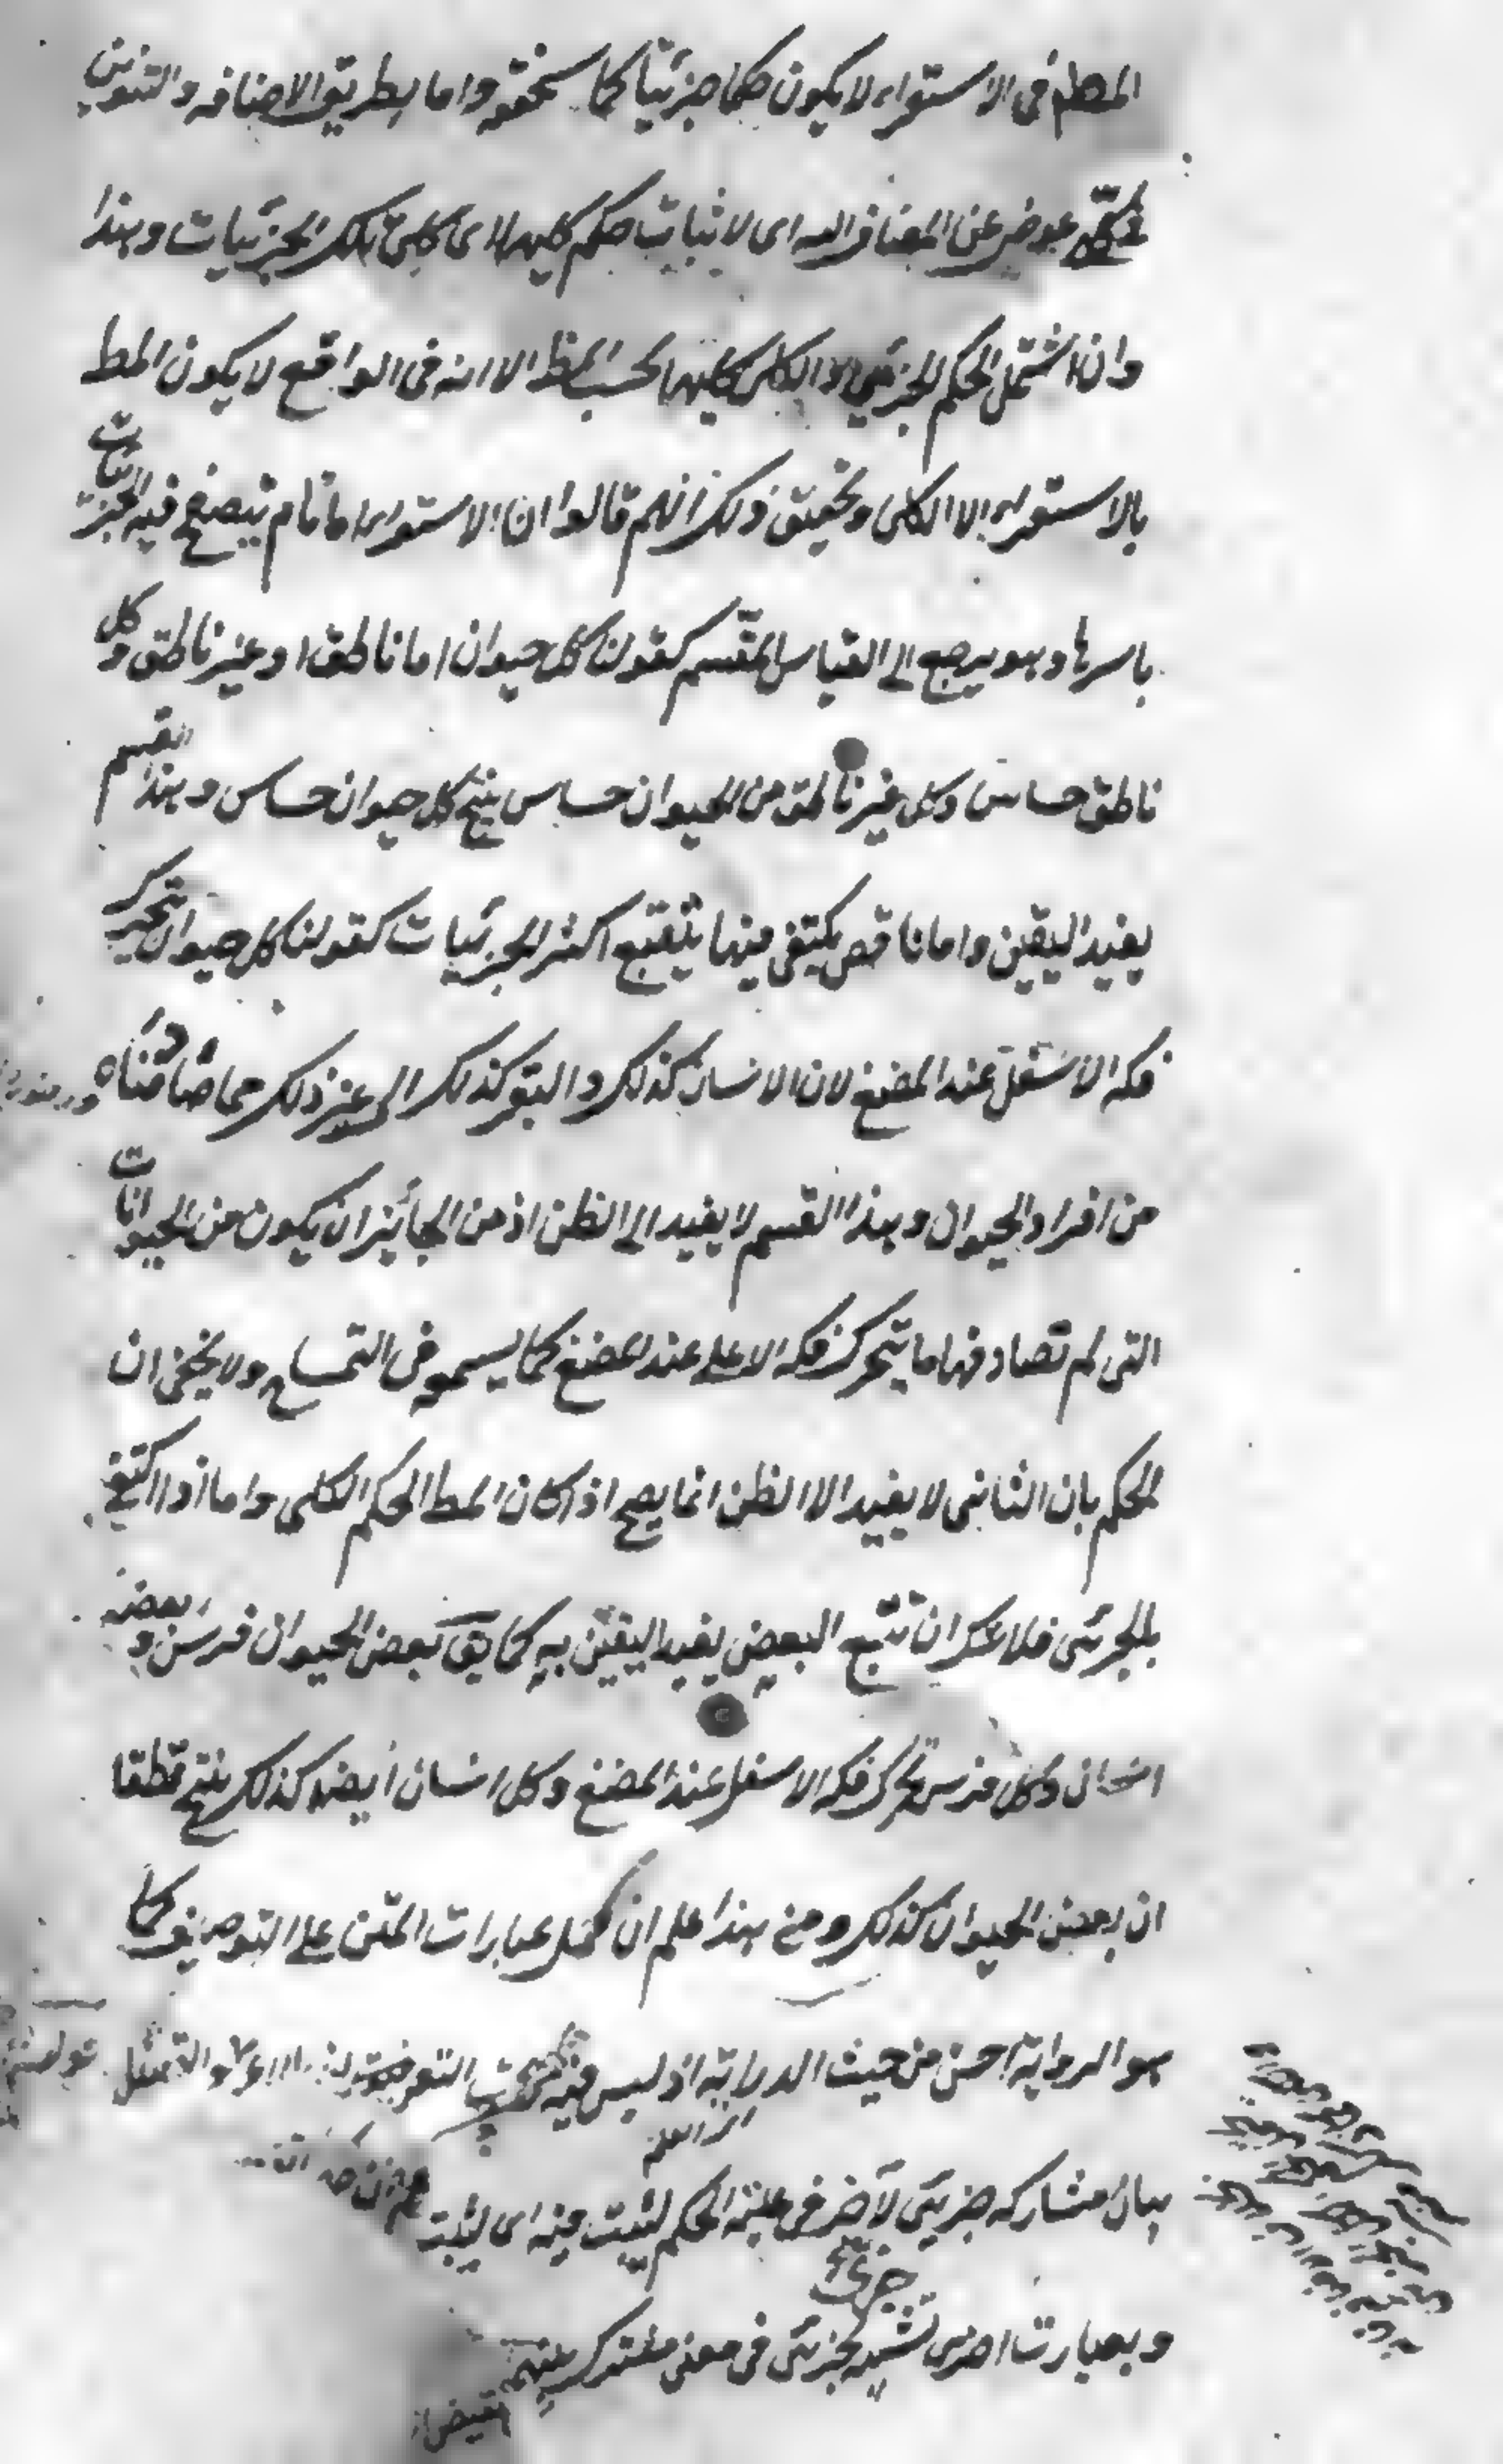 المطلوب فى الاستقراء لا يكون حكما جزئيا كما سنحققه واما بطريق الاضافه والتنوين
فى كلى عوض عن المضاف اليه اى لاثبات حكم كليها اى كلى تلك الجزئيات وهذا
وان اشتمل الحكم الجزئى والكلى كليهما بحسب الظ الا انه فى الواقع لا يكون المط
بالاستقراء الا الكلى وتحقيق ذلك انهم قالوا ان الاستقراء اما تام يتصفح فيه الجزئيات
باسرها وهو يرجع الى القياس المقسم كقولنا كل حيوان اما ناطق او غير ناطق وكل
ناطق حساس وكل غير ناطق من الحيوان حساس ينتج كل حيوان حساس وهذا القسم
يفيد اليقين واما ناقص يكتفى فيها بتتبع اكثر الجزئيات كقولنا كل حيوان يتحرك
فكه الاسفل عند المضغ لان الانسان كذلك والبقر كذلك الى غير ذلك مما صادفناه
من افراد الحيوان وهذا القسم لا يفيد الى الظن اذ من الجائز ان يكون من الحيوانات
التى لم تصادفها ما يتحرك فكه الاعلى عند المضغ كما يسمعه فى التمساح ولا يخفى ان
الحكم بان الثانى لا يفيد الا الظن انما يصح اذا كان المط الحكم الكلى واما اذا اكتفى
بالجزئى فلا شك ان تتبع البعض يفيد اليقين به كما يق بعض الحيوان فرس وبعضه
انسان وكل فرس يحرك فكه الاسفل عند المضغ وكل انسان ايضا كذلك ينتج قطعا
ان بعض الحيوان كذلك ومن هذا علم ان حمل عبارات المتن على التوصيف كما
هو الرواية احسن من حيث الدراية اذ ليس فيه التعريف والتمثيل
بيان مشاركه جزيئى لآخر فى علة الحكم ليثبت فيه اى ليثبت
جزئى
وبعبارت اخرى تشبيه بجزئى فى معنى مشترك بينهما